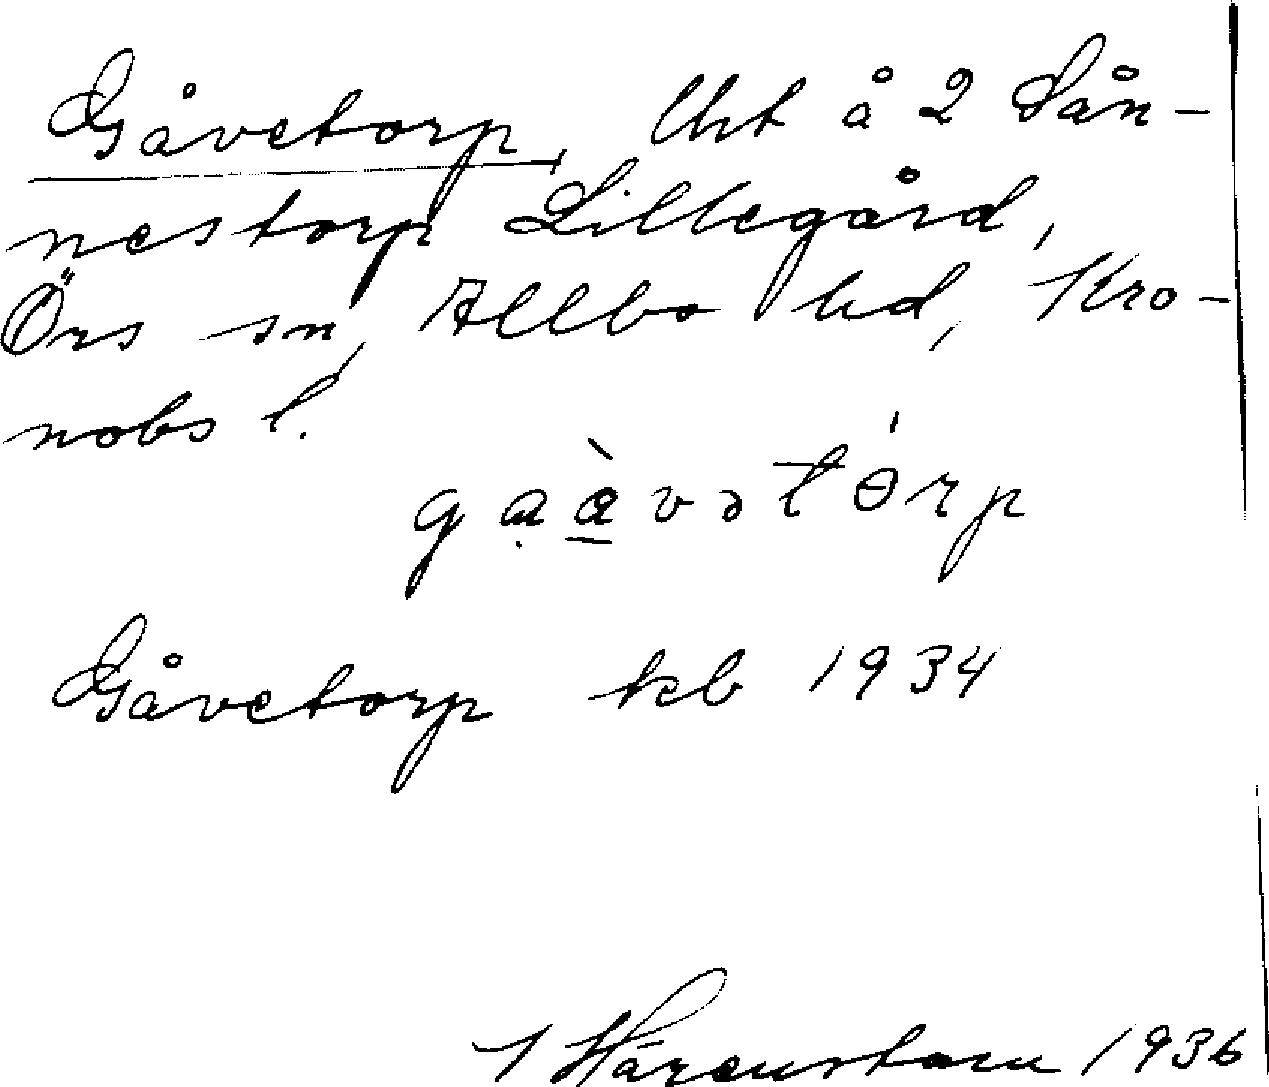 Gåvetorp, lht å 2 Sån-
nestorp Lillegård,
Örs sn, Allbo hd, Kro-
nobs l.
ga̤à̱vətɵ́rp
Gåvetorp kb 1934
1936